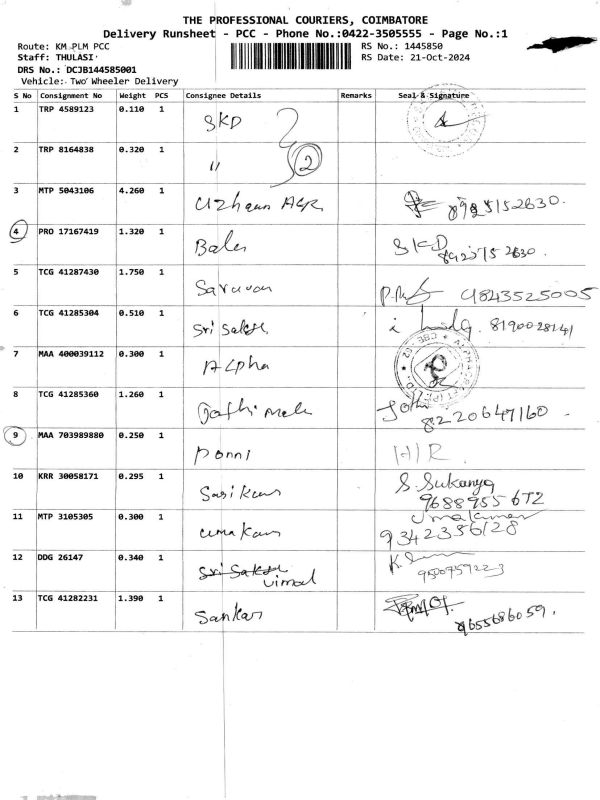 THE PROFESSIONAL COURIERS, COIMBATORE
Delivery Runsheet - PCC - Phone No.:0422-3505555 - Page No.:1
Route: KM PLM PCC
RS No.: 1445850
Staff: THULASI
RS Date: 21-Oct-2024
DRS No.: DCJB144585001
Vehicle: Two Wheeler Delivery
S No Consignment No Weight PCS Consignee Details Remarks Seal & Signature
1 TRP 4589123 0.110 1 SKD
2 TRP 8164838 0.320 1 " 2
3 MTP 5043106 4.260 1 Uzhavan 8925152630.
4 PRO 17167419 1.320 1 SKD
5 TCG 41287430 1.750 1 9843525005
6 TCG 41285304 0.510 1 Sri Sakthi 8190028141
7 MAA 400039112 0.300 1 Alpha
8 TCG 41285360 1.260 1 Jothi Mala Jothi 8220647160
9 MAA 703989880 0.250 1 Ponni HIR
10 KRR 30058171 0.295 1 S. Sukanya
9688955672
11 MTP 3105305 0.300 1 umakan umakumar
9342356128
12 DDG 26147 0.340 1 Sri Sakthi vimal 9500759223
13 TCG 41282231 1.390 1 Sankar 9655686059.